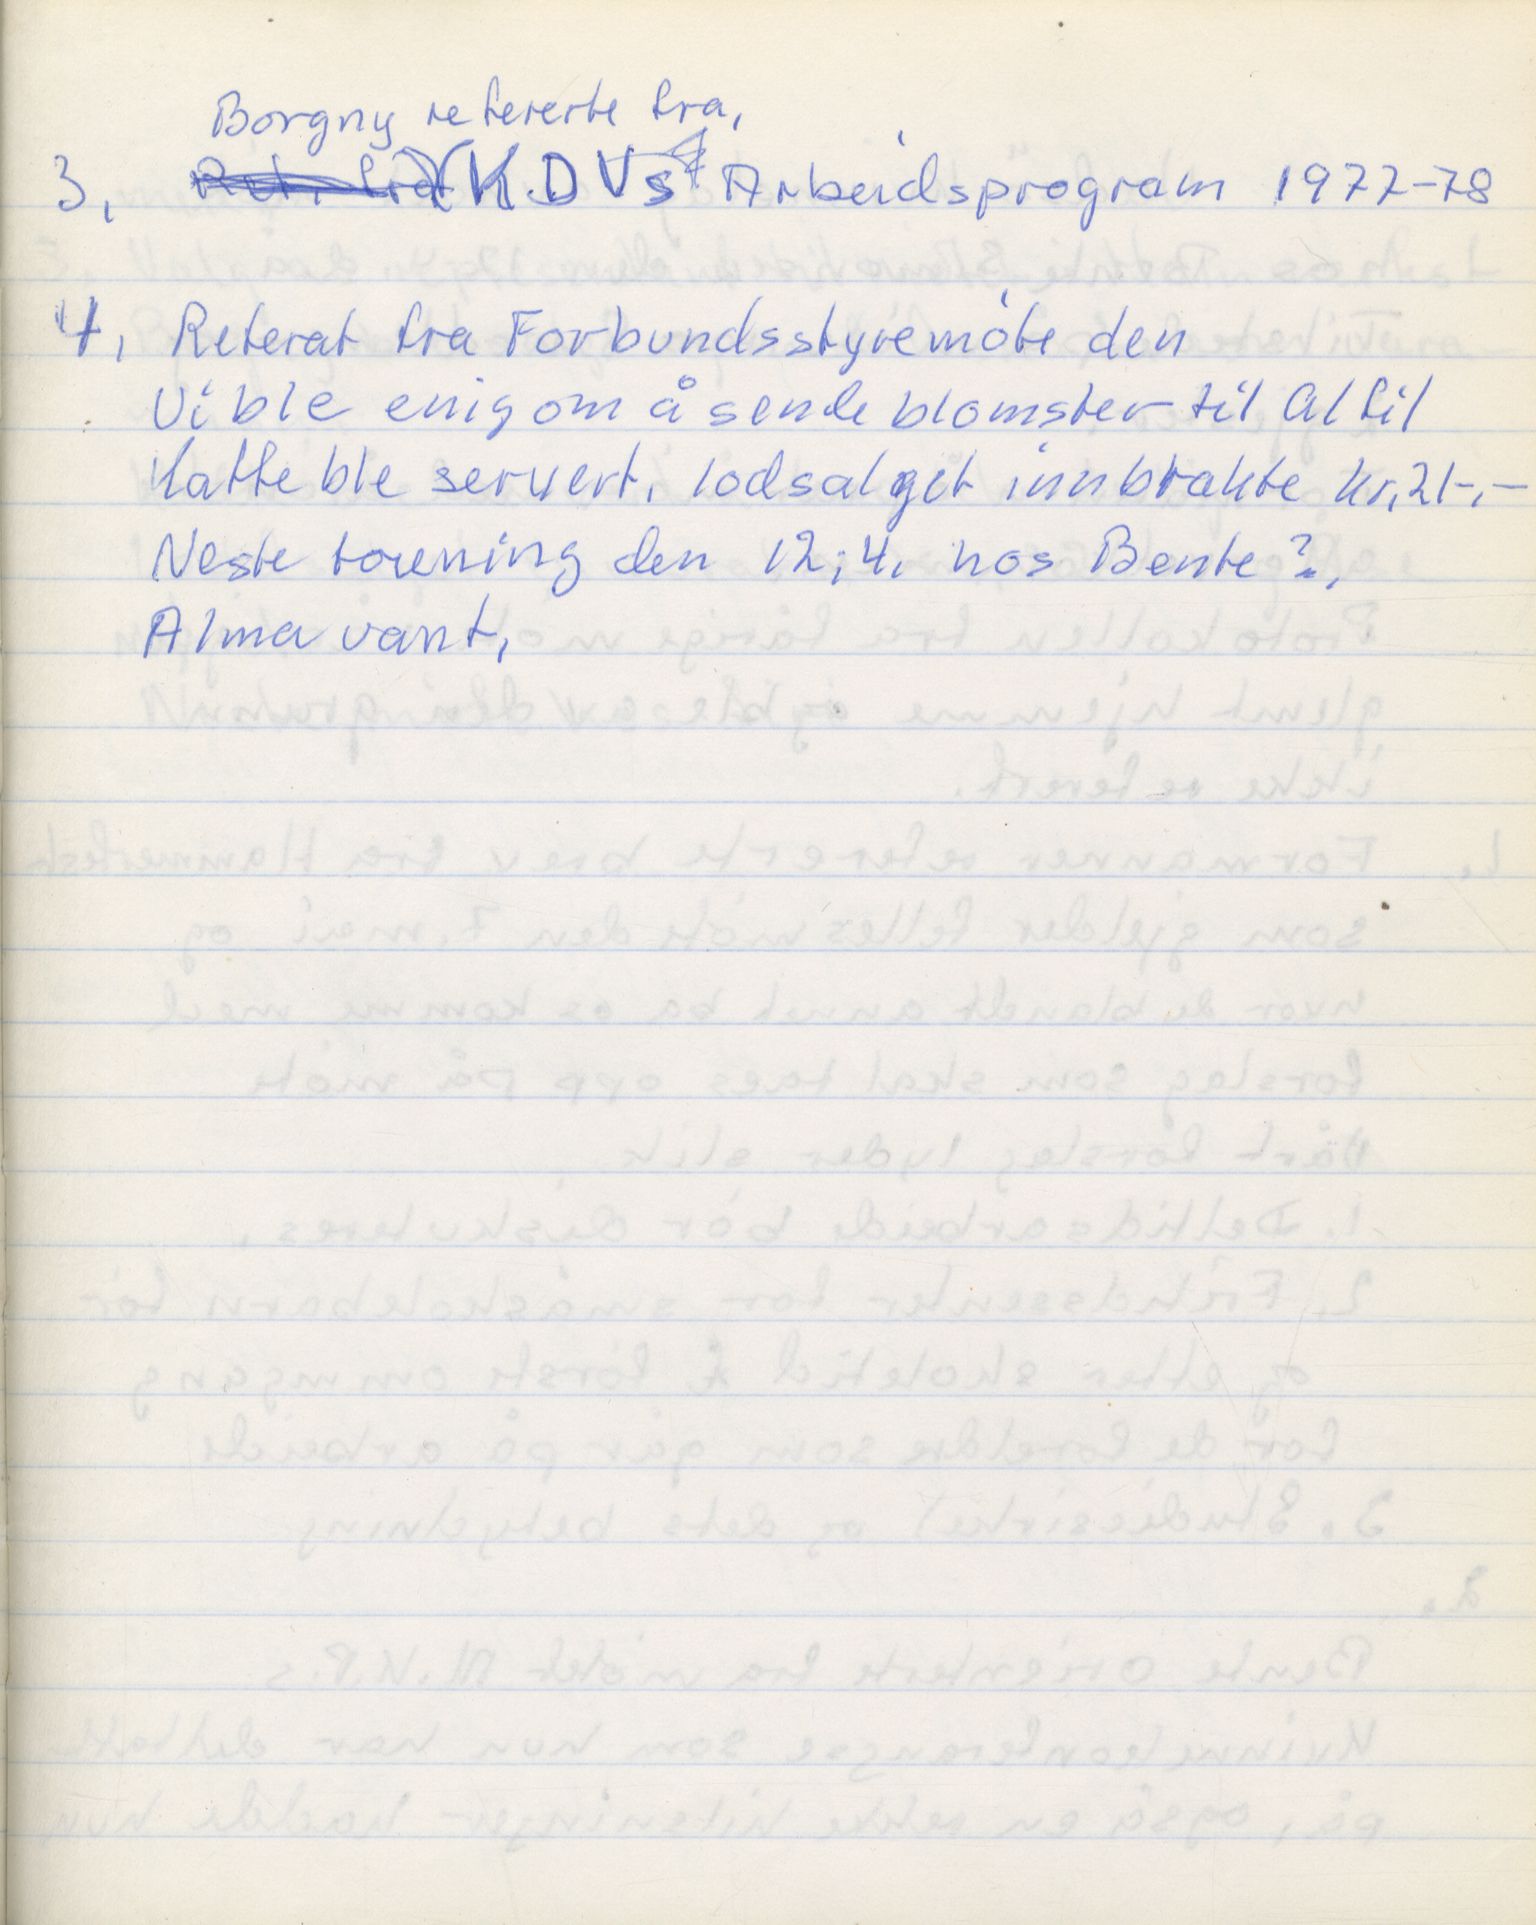 Borgny refererte fra,
3, Ref. fra K.D.V.s Arbeidsprogram 1977-78
4, Referat fra Forbundsstyremöte den
Vi ble enig om å sende blomster til Alfil
Kaffe ble servert, lodsalget innbrakte kr, 21-,-
Neste forening den 12,4, hos Bente?,
Alma vant,